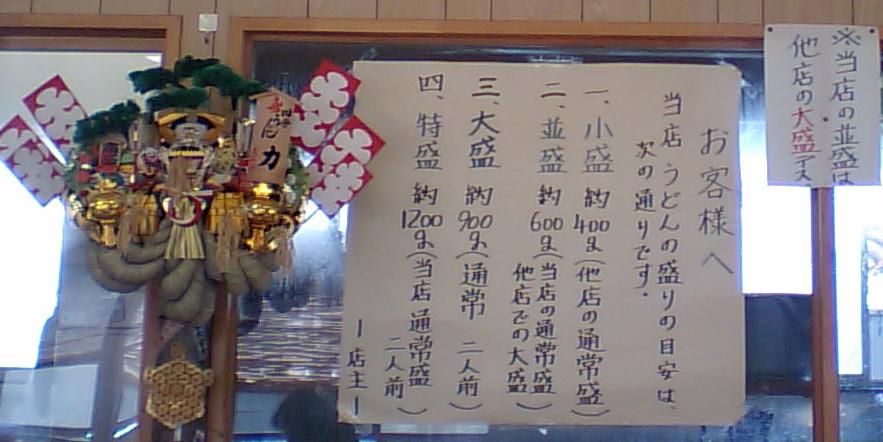 お客様へ
当店 うどんの盛りの目安は、
次の通りです．
一、小盛 約400g(他店の通常盛)
二、並盛 約600g(当店の通常盛
他店での大盛)
三、大盛 約900g(通常 二人前)
四、特盛 約1200g(当店 通常盛
二人前)
ー店主ー
※当店の並盛は
他店の大盛デス
力